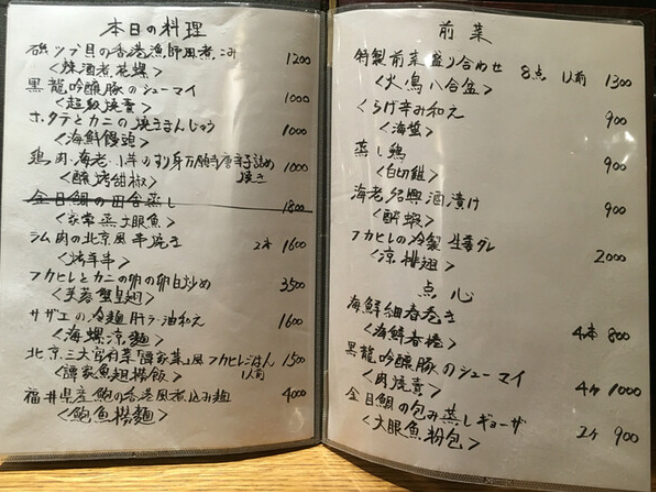 本日の料理
磯ツブ貝の香港漁師風煮こみ 1200
<焼酒煮花螺>
黒龍吟醸豚のシューマイ 1000
<超級焼賣>
ホタテとカニの焼きまんじゅう 1000
<海鮮饅頭>
鶏肉・海老・イ羊のすり身万願寺唐辛子詰め焼き 1000
<醸烤甜椒>
金目鯛の田舎蒸し 1800
<家常蒸大眼魚>
ラム肉の北京風串焼き 2本 1600
<烤羊串>
フカヒレとカニの卵の卵白炒め 3500
<芙蓉蟹皇翅>
サザエの冷麺肝ラー油和え 1600
<海螺涼麺>
北京三大官府菜「譚家菜」風フカヒレごはん 1人前 1500
<譚家魚翅撈飯>
福井県産鮑の香港風煮込み麺 4000
<鮑魚撈麺>
前菜
特製前菜盛り合わせ 8点 1人前 1300
<火鳥八合盆>
くらげ辛み和え 900
<海蜇>
蒸し鶏 900
<白切鶏>
海老紹興酒漬け 900
<酔蝦>
フカヒレの冷製 生姜ダレ 2000
<涼拌翅>
点心
海鮮細春巻き 4本 800
<海鮮春捲>
黒龍吟醸豚のシューマイ 4ケ 1000
<肉焼賣>
金目鯛の包み蒸しギョーザ 2ケ 900
<大眼魚粉包>